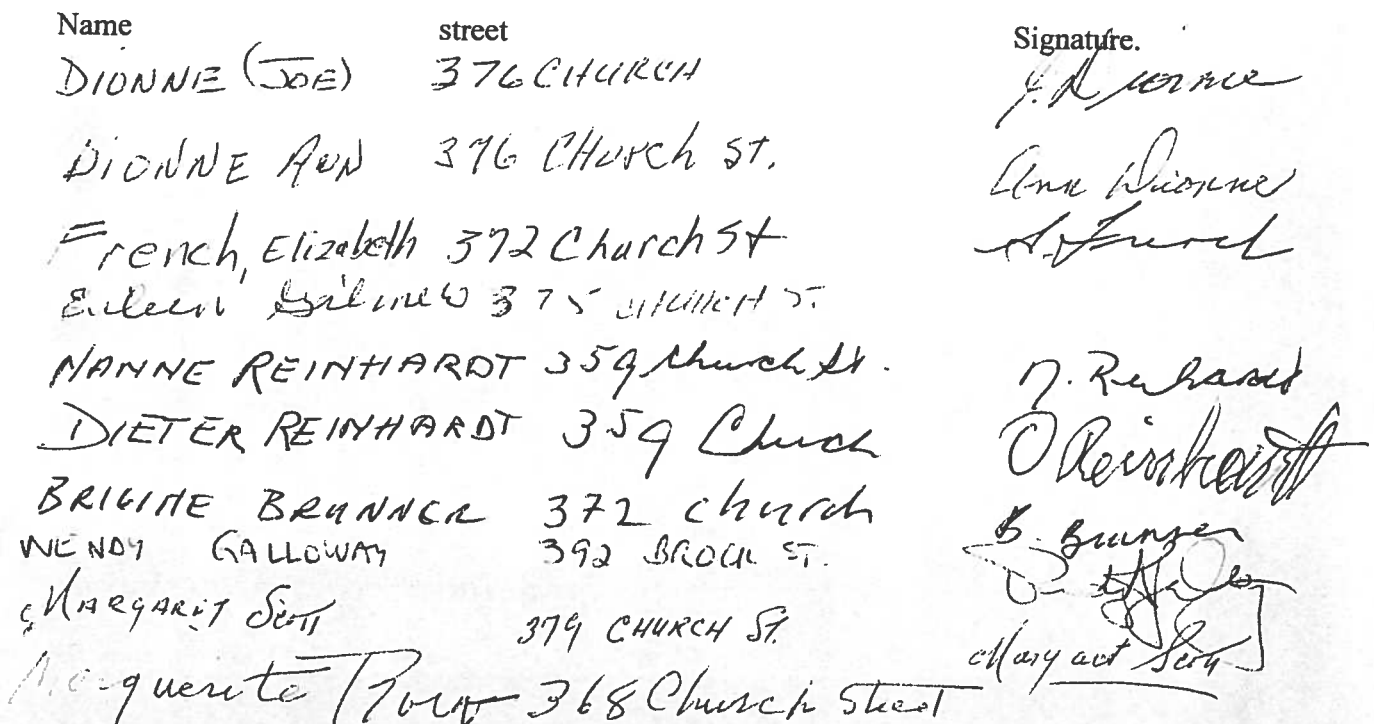 Name street Signature.
DIONNE (JOE) 376 CHURCH J. Dionne
DIONNE ANN 376 CHURCh ST. Ann Dionne
French, Elizabeth 372 Church St
Eileen 375 CHURCH ST.
NANNE REINHARDT 359 Church St. N. Reinhardt
DIETER REINHARDT 359 Church D Reinhardt
BRIGITTE BRUNNER 372 church B. Brunner
WENDY GALLOWAY 392 BROCK ST.
MARGARET Scott 379 CHURCH St. Margaret Scott
Marguerite 368 Church Street